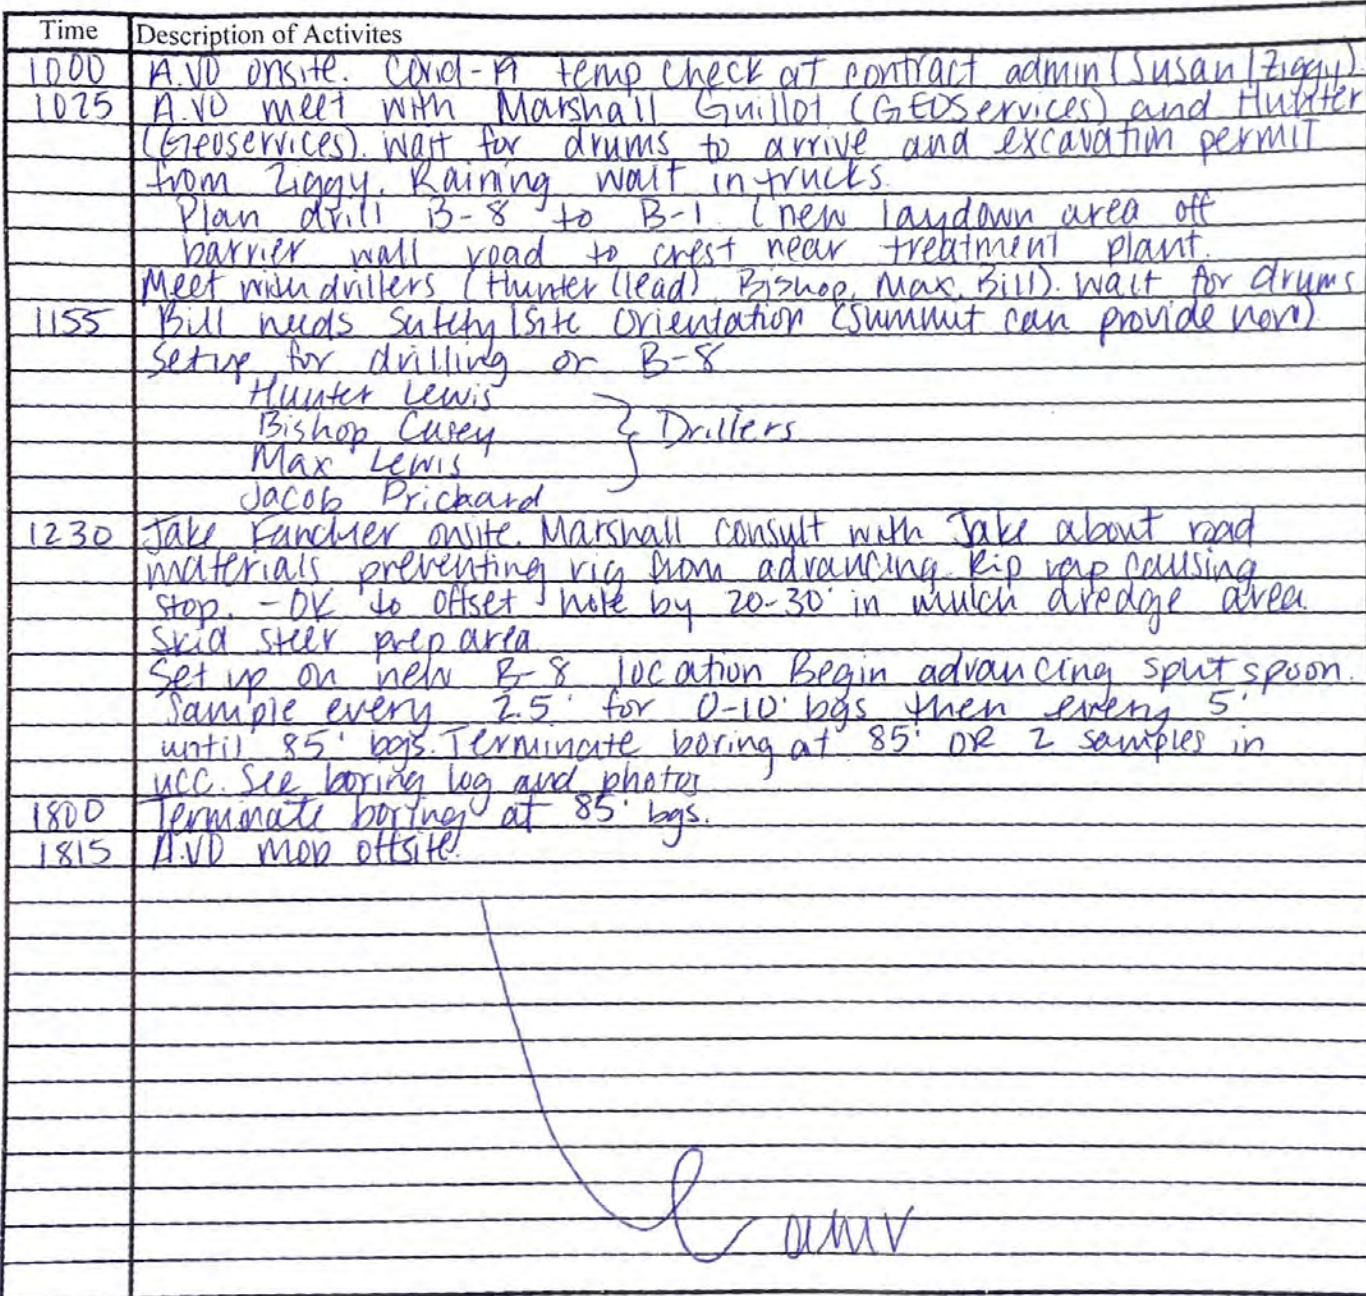 Time Description of Activites
1000 A.VD onsite. Covid-19 temp check at contract admin (Susan/Ziggy).
1025 A.VD meet with Marshall Guillot (GEOServices) and Hunter
(Geoservices). Wait for drums to arrive and excavation permit
from Ziggy. Raining wait in trucks.
Plan drill B-8 to B-1 (new laydown area off
barrier wall road to crest near treatment plant.
Meet with drillers (Hunter (lead), Bishop, Max, Bill). Wait for drums
1155 Bill needs Safety/Site Orientation (Summit can provide now)
Setup for drilling or B-8
Hunter Lewis
Bishop Curey } Drillers
Max Lewis
Jacob Prichard
1230 Jake Fancher onsite. Marshall consult with Jake about road
materials preventing rig from advancing. Rip rap causing
stop. - OK to offset hole by 20-30' in mulch dredge area.
Skid steer prep area
Set up on new B-8 location Begin advancing split spoon.
Sample every 2.5' for 0-10' bgs then every 5'
until 85' bgs. Terminate boring at 85' OR 2 samples in
UCC. See boring log and photos
1800 Terminate boring at 85' bgs.
1815 A.VD mob offsite.
amv